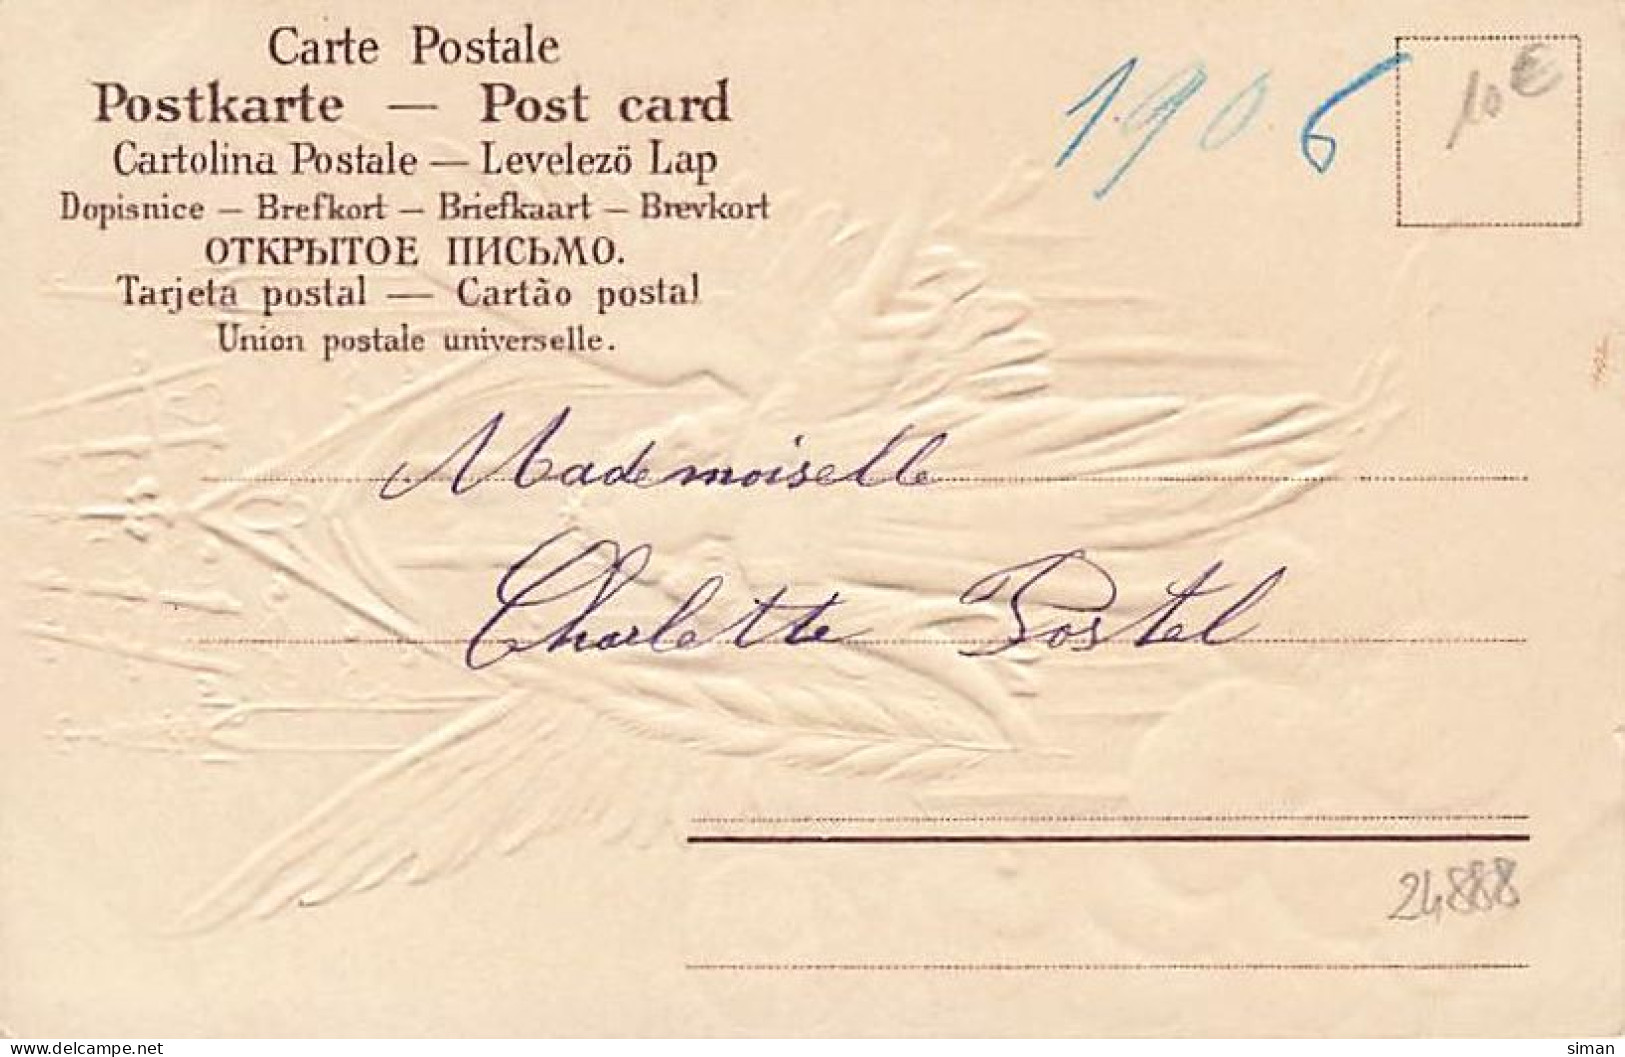 Carte Postale
Postkarte — Post card
Cartolina Postale — Levelező Lap
Dopisnice — Brefkort — Briefkaart — Brevkort
ОТКРЫТОЕ ПИСЬМО.
Tarjeta postal — Cartão postal
Union postale universelle.
1906
10 €
Mademoiselle
Charlette Postel
24888
delcampe.net
siman